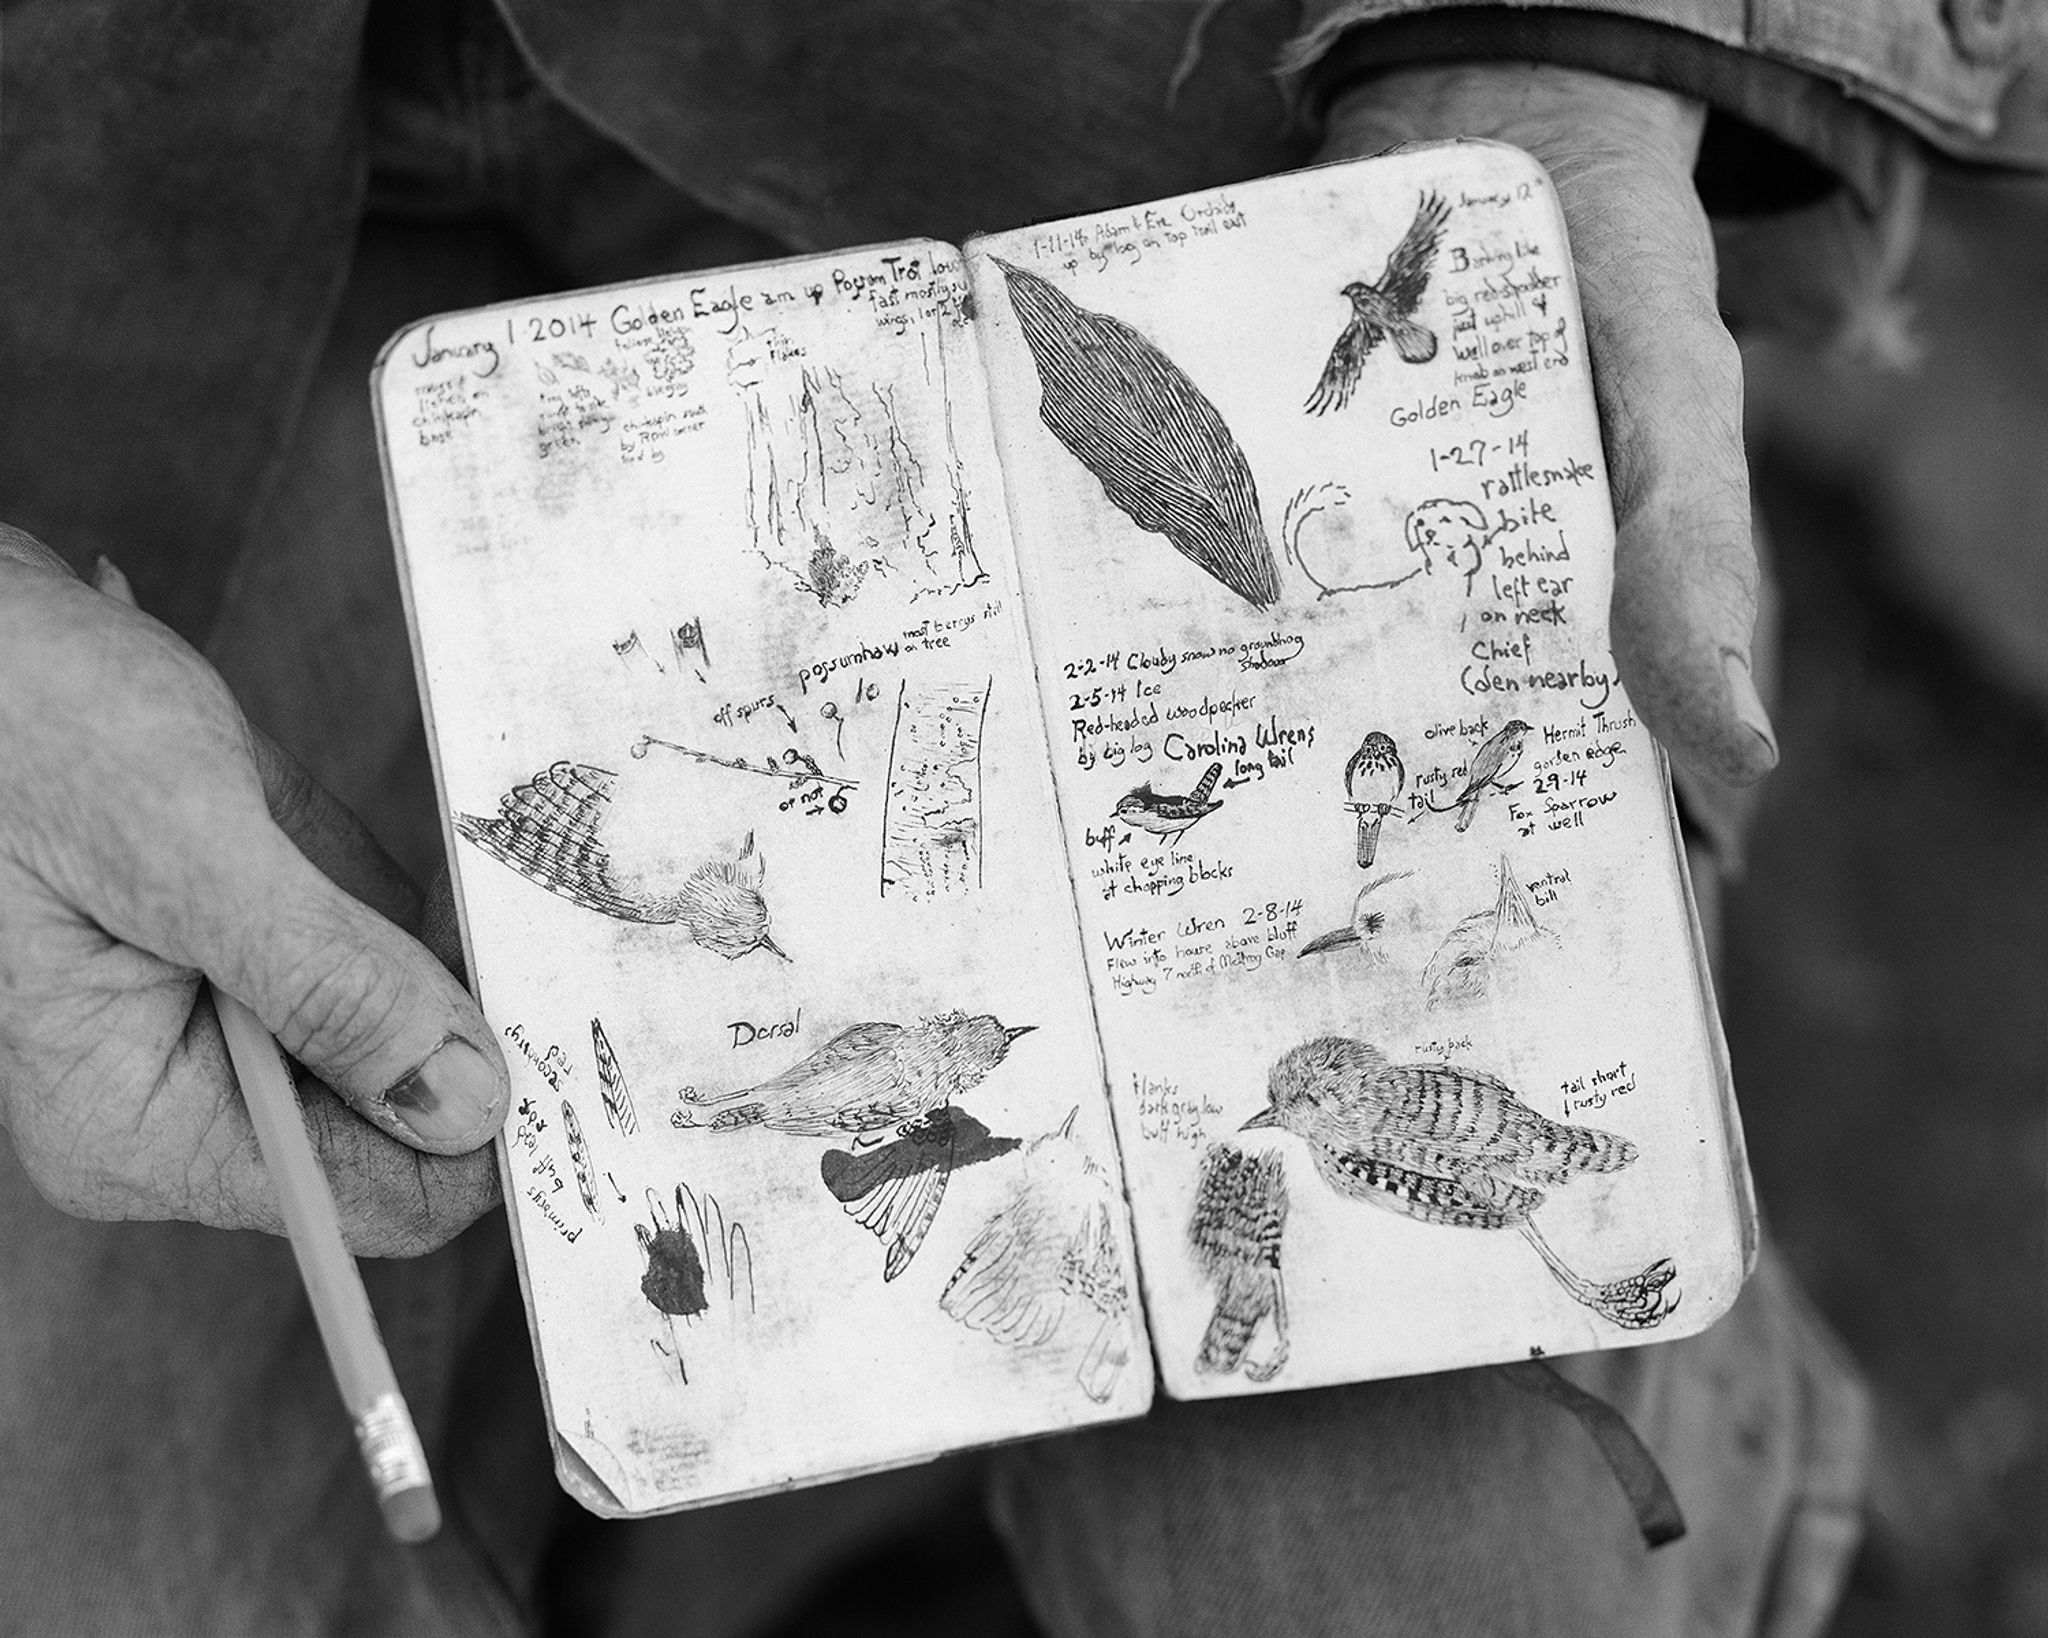 January 1-2014 Golden Eagle am up Possum Trot low
fast mostly
wings, 1 or 2
moss &
lichen on
chinkapin
base
foliose lichen
tiny with
green
bluegray
chinkapin
by ROW corner
thin
flakes
possumhaw most berrys still
on tree
off spurs
or not
Dorsal
secondarys
red
edge
buff to
primarys
1-11-14 Adam & Eve Orchids
up by log on top trail east
January 12th
Barking like
big red-shoulder
just uphill of
well over top of
knob on west end
Golden Eagle
1-27-14
rattlesnake
bite
behind
left ear
on neck
Chief
(den nearby)
2-2-14 Cloudy snow no groundhog
shadow
2-5-14 Ice
Red-headed woodpecker
by big log Carolina Wrens
long tail
buff
white eye line
at chopping blocks
olive back
rusty red
tail
Hermit Thrush
garden edge
2-9-14
Fox Sparrow
at well
Winter Wren 2-8-14
Flew into house above bluff
Highway 7 north of Gap
ventral
bill
rusty back
tail short
rusty red
flanks
dark gray low
buff high